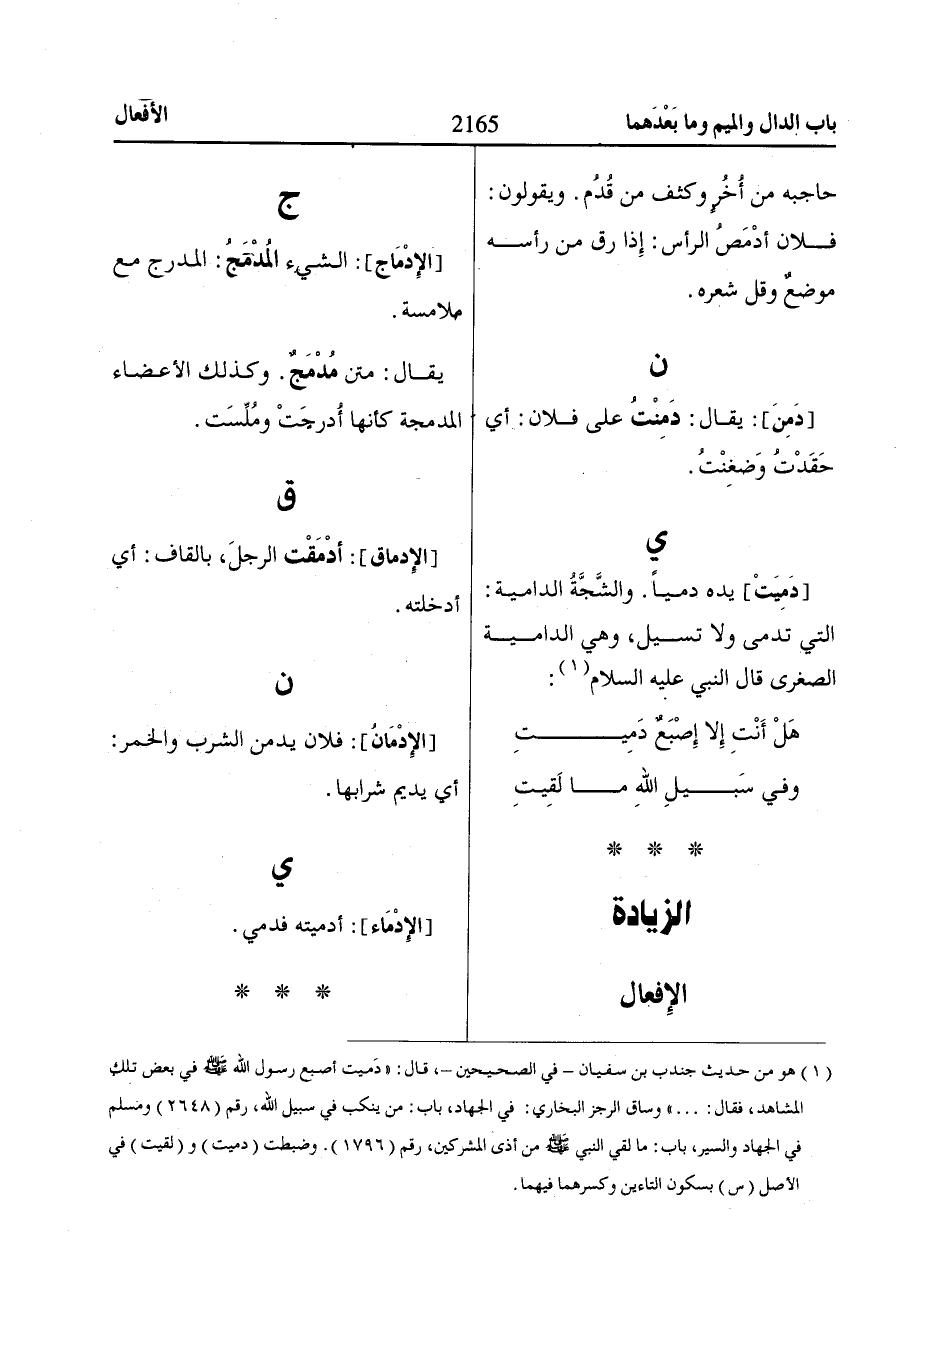 باب الدال والميم وما بَعْدَهما
2165
الأفعال
حاجبه من أُخُرٍ وكثف من قُدُم. ويقولون:
فلان أدْمَصُ الرأس: إذا رق من رأسه
موضعٌ وقل شعره.
ن
[دَمِنَ]: يقال: دَمِنْتُ على فلان: أي
حَقَدْتُ وَضَغِنْتُ.
ي
[دَمِيَتْ] يده دمياً. والشَّجَّةُ الدامية:
التي تدمى ولا تسيل، وهي الدامية
الصغرى قال النبي عليه السلام(١):
هَلْ أَنْتِ إِلا إِصْبَعٌ دَمِيتِ
وفي سَبِيلِ اللهِ مـا لَقِيتِ
* * *
الزيادة
الإفعال
ج
[الإدْمَاج]: الشيء المُدْمَجُ: المدرج مع
ملامسة.
يقال: متن مُدْمَجٌ. وكذلك الأعضاء
المدمجة كأنها أُدرجَتْ ومُلِّسَت.
ق
[الإدماق]: أدْمَقْت الرجلَ، بالقاف: أي
أدخلته.
ن
[الإدْمَانُ]: فلان يدمن الشرب والخمر:
أي يديم شرابها.
ي
[الإدْمَاء]: أدميته فدمي.
* * *
(١) هو من حديث جندب بن سفيان – في الصحيحين –، قال: «دَميت أصبع رسول الله ﷺ في بعض تلك
المشاهد، فقال: ...» وساق الرجز البخاري: في الجهاد، باب: من ينكب في سبيل الله، رقم (٢٦٤٨) ومسلم
في الجهاد والسير، باب: ما لقي النبي ﷺ من أذى المشركين، رقم (١٧٩٦). وضبطت (دميت) و(لقيت) في
الأصل (س) بسكون التاءين وكسرهما فيهما.